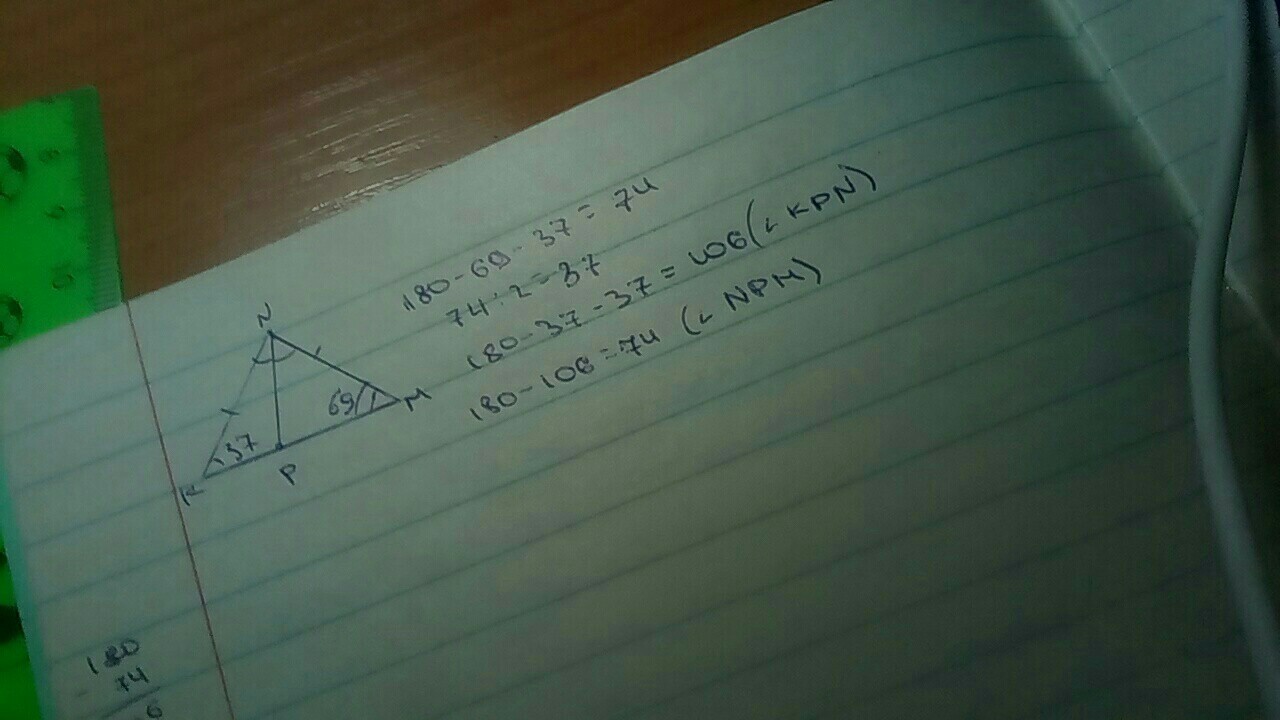 180-69-37=74
74:2=37
180-37-37=106(∠KPN)
180-106=74 (∠NPM)
N
69
M
37
K
P
180
- 74
6